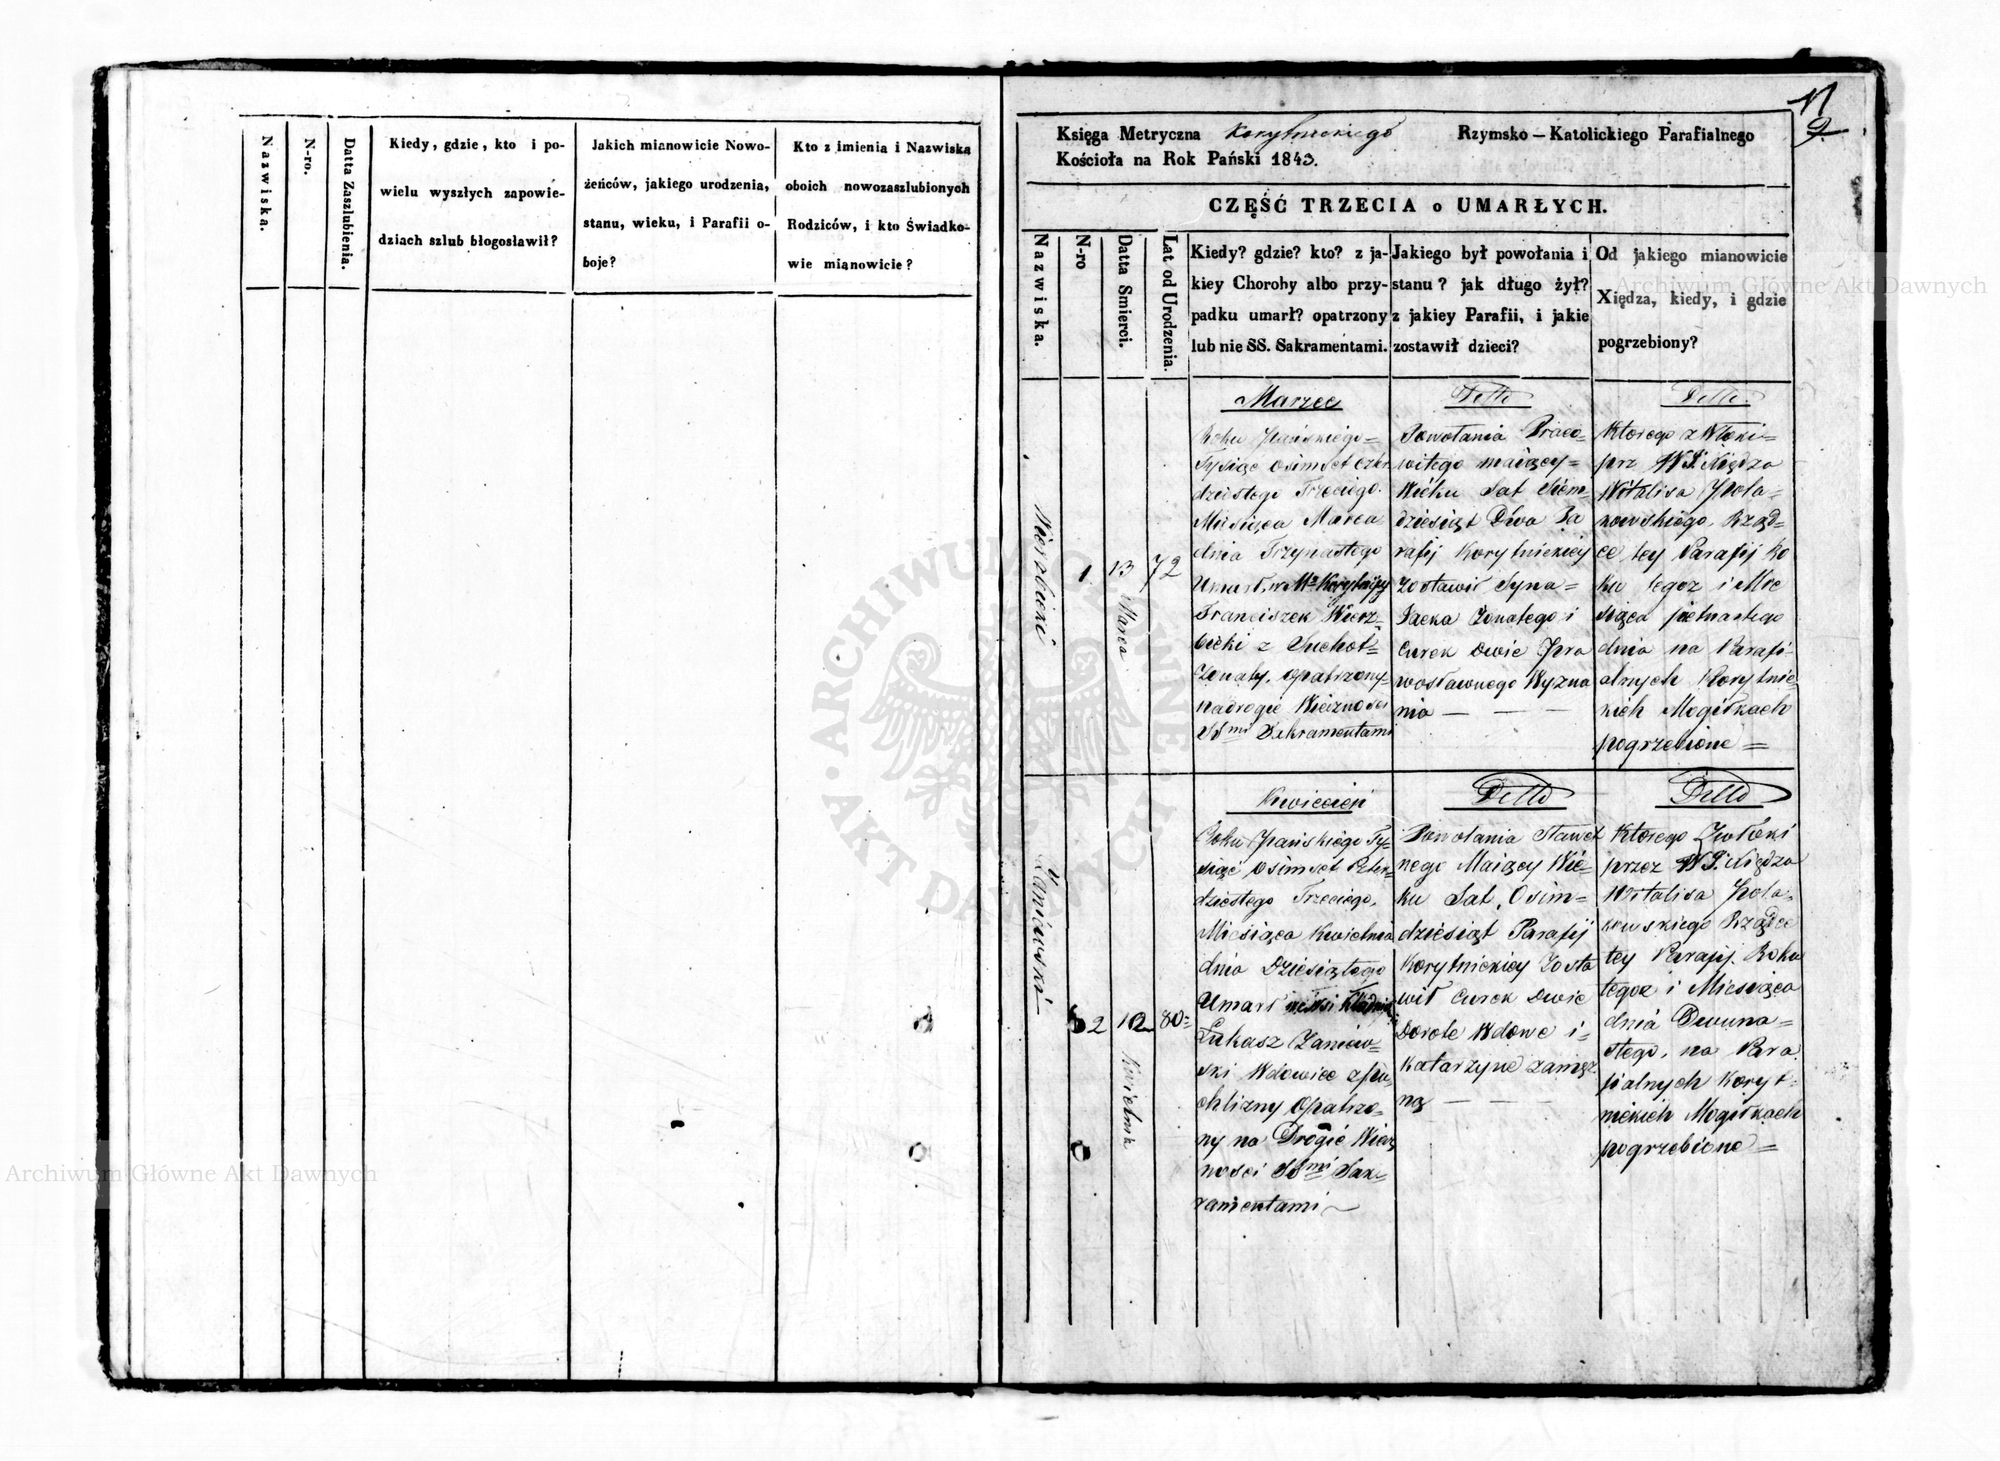 Nazwiska.
N-ro.
Datta Zaszlubienia.
Kiedy, gdzie, kto i po-
wielu wyszłych zapowie-
dziach szlub błogosławił?
Jakich mianowicie Nowo-
żeńców, jakiego urodzenia,
stanu, wieku, i Parafii o-
boje?
Kto z imienia i Nazwiska
oboich nowozaszlubionych
Rodziców, i kto Świadko-
wie mianowicie?
Księga Metryczna Korytnickiego Rzymsko-Katolickiego Parafialnego
Kościoła na Rok Pański 1843.
CZĘŚĆ TRZECIA o UMARŁYCH.
Nazwiska.
N-ro
Datta Smierci.
Lat od Urodzenia.
Kiedy? gdzie? kto? z ja-
kiey Choroby albo przy-
padku umarł? opatrzony
lub nie SS. Sakramentami.
Jakiego był powołania i
stanu? jak długo żył?
z jakiey Parafii, i jakie
zostawił dzieci?
Od jakiego mianowicie
Xiędza, kiedy, i gdzie
pogrzebiony?
Wierzbicki
1
13 Marca
72
Marzec
Roku Pańskiego=
Tysiąc Osimset Czter
dziestego Trzeciego.
Miesiąca Marca
dnia Trzynastego
Umarł w Mku Korytnicy
Franciszek Wierz=
bicki z Suchot=
Żonaty, opatrzony=
na drogie Wieczności
SSmi Sakramentami
Detto
Powołania Praco=
witego maiący=
Wieku Lat Siem=
dziesiąt Dwa Pa
rafij Korytnickiey
Zostawił Syna=
Jacka Żonatego i
Curek Dwie Pra
wosławnego Wyzna
nia — — —
Detto.
Ktorego zwłoki=
prz WJ. Xiędza
Witalisa Pola=
nowskiego, Rząd=
ce tey Parafij Ro
ku tegoz i Mie
siąca pietnastego
dnia na Parafi-
alnych Korytnic=
kich Mogiłkach
pogrzebione=
Łaniewski
2
12 Kwietnia
80=
Kwiecień
Roku Pańskiego Ty=
siąc Osimset Czter=
dziestego Trzeciego,
Miesiąca Kwietnia
dnia Dziesiątego
Umarł we Wsi
Łukasz Łaniew=
ski Wdowiec z Pu
chlizny Opatrzo=
ny na Drogie Wiecz
nosci SSmi Sak=
ramentami
Detto
Powołania Sławet
nego Maiący Wie=
ku Lat, Osim=
dziesiąt Parafij
Korytnickiey Zosta
wił Curek Dwie
Dorote Wdowe i=
Katarzyne zamęż
ną — — —
Detto
Ktorego Zwłoki
przez WJ. Xiędza
Witalisa Pola=
nowskiego Rządce
tey Parafij. Roku
tegoz i Miesiąca
dnia Dwuna=
stego, na Para
fialnych Koryt=
nickich Mogiłkach
pogrzebione=
ARCHIWUM GŁÓWNE AKT DAWNYCH
Archiwum Główne Akt Dawnych
Archiwum Główne Akt Dawnych